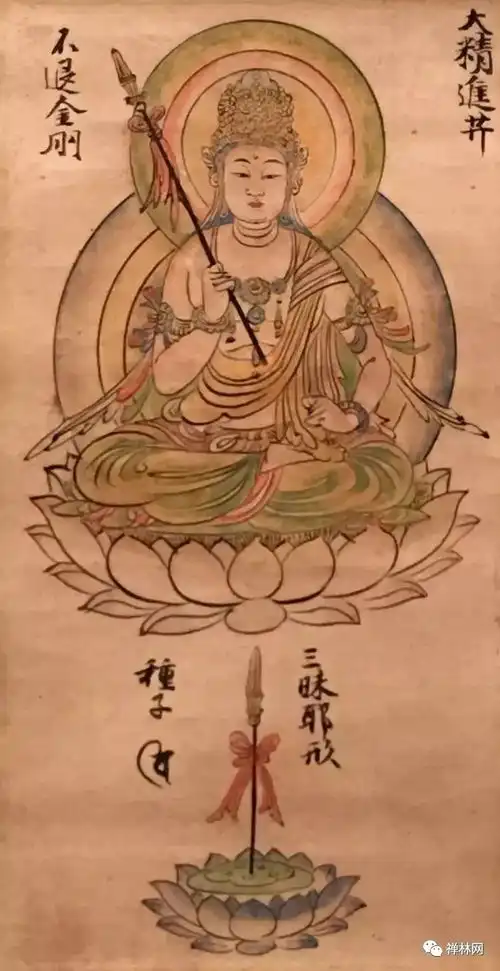 大精進井
不退金剛
三昧耶形
種子
禅林网